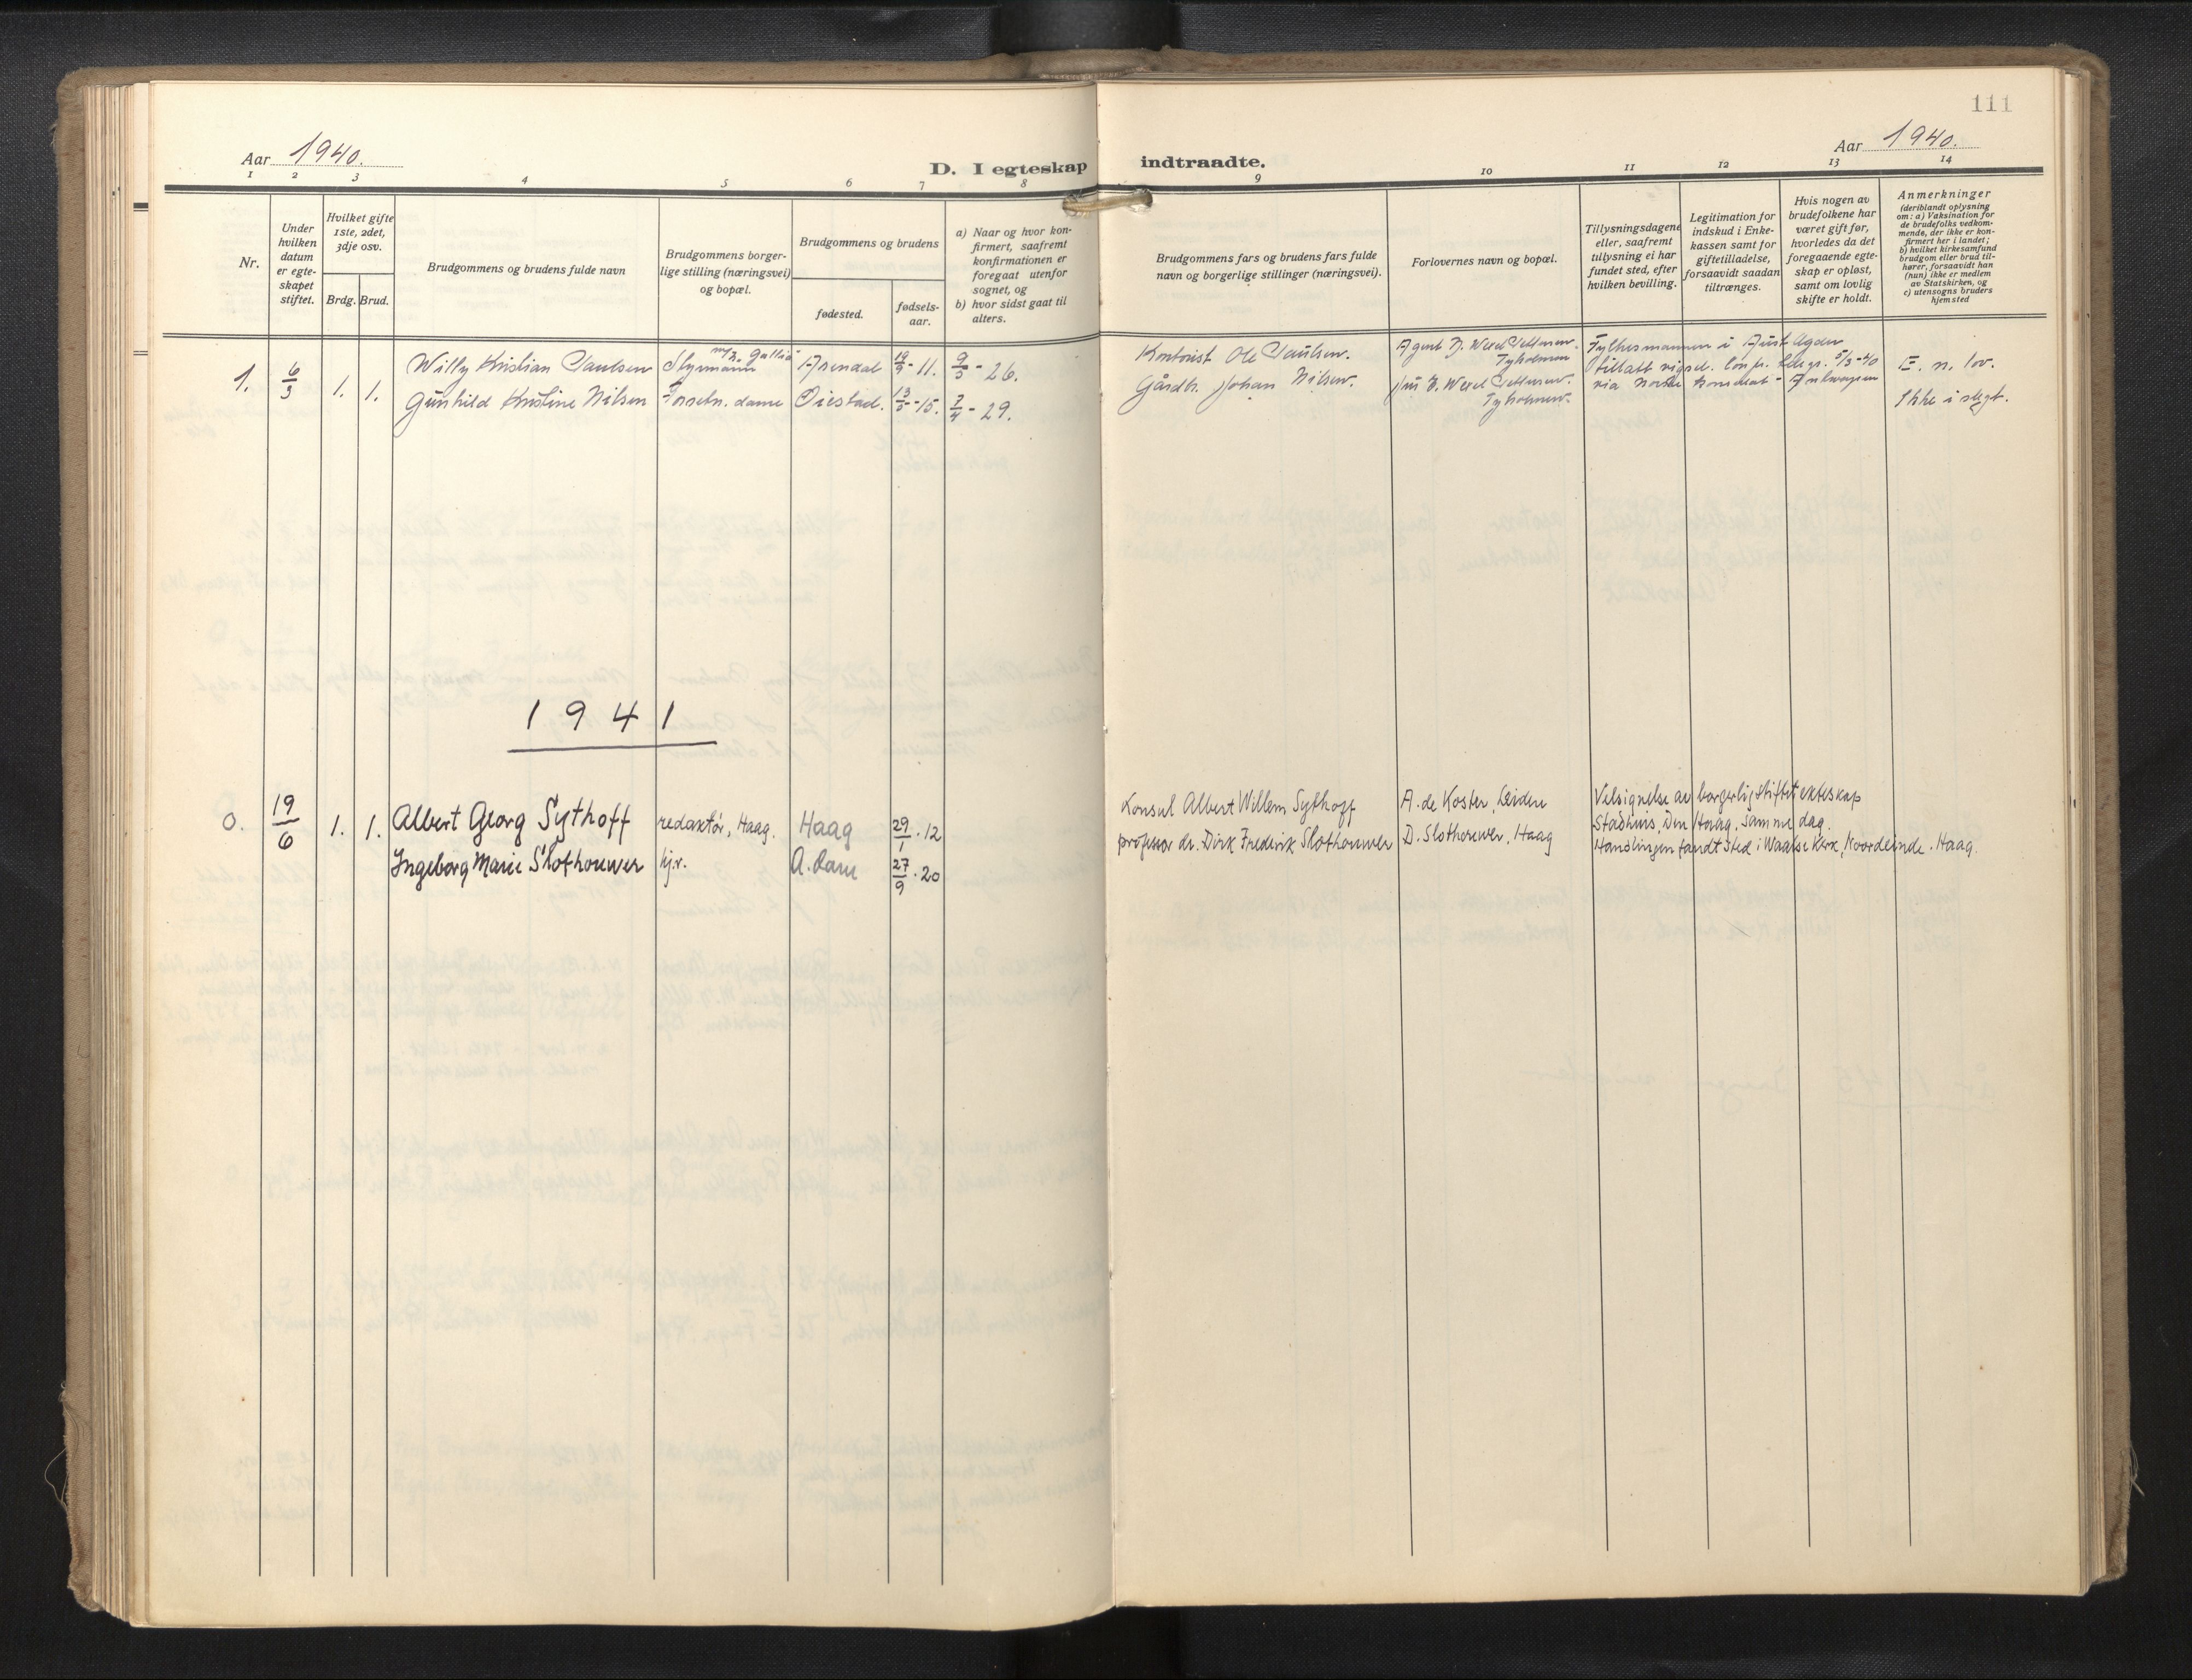 111
Aar 1940.
D. I egteskap indtraadte.
Aar 1940.
1 2 3 4 5 6 7 8 9 10 11 12 13 14
Nr.
Under hvilken datum er egteskapet stiftet.
Hvilket gifte 1ste, 2det, 3dje osv.
Brdg. Brud.
Brudgommens og brudens fulde navn
Brudgommens borgerlige stilling (næringsvei) og bopæl.
Brudgommens og brudens
fødested.
fødselsaar.
a) Naar og hvor konfirmert, saafremt konfirmationen er foregaat utenfor sognet, og
b) hvor sidst gaat til alters.
Brudgommens fars og brudens fars fulde navn og borgerlige stillinger (næringsvei).
Forlovernes navn og bopæl.
Tillysningsdagene eller, saafremt tillysning ei har fundet sted, efter hvilken bevilling.
Legitimation for indskud i Enkekassen samt for giftetilladelse, forsaavidt saadan tiltrænges.
Hvis nogen av brudefolkene har været gift før, hvorledes da det foregaaende egteskap er opløst, samt om lovlig skifte er holdt.
Anmerkninger
(deriblandt oplysning om: a) Vaksination for de brudefolks vedkommende, der ikke er konfirmert her i landet; b) hvilket kirkesamfund brudgom eller brud tilhører, forsaavidt han (hun) ikke er medlem av Statskirken, og c) utensogns bruders hjemsted
1. 6/3 1. 1. Willy Kristian Paulsen Styrmann Arendal 19/9-11. 9/5-26.
Gunhild Kristine Nilsen Forretn. dame Øiestad. 13/5-15. 7/4-29.
Kontorist Ole Paulsen.
Gårdb. Johan Nilsen.
Agent
Tyholmen
Tyholmen.
Fylkesmannen i Aust Agder
tillatt vigsel. telegr. 5/3-40
via Norske Konsulat - Antwerpen
E. n. lov.
Ikke i slegt.
1941
0. 19/6 1. 1. Albert Georg Sythoff redaktør, Haag. Haag 29/1.12
Ingeborg Marie Slothouwer hj.v. 27/9.20
Konsul Albert Willem Sythoff
professor dr. Dirk Frederik Slothouwer
A. de Koster, Leiden
D. Slothouwer, Haag
Velsignelse av borgerlig stiftet ekteskap
Stadhuis, Den Haag, samme dag.
Handlingen fandt sted i Waalse Kerk, Noordeinde. Haag.